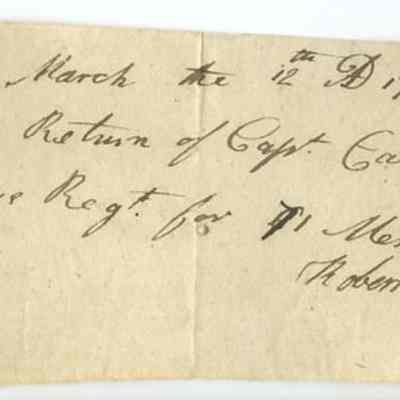 March the 12th AD 17
Return of Capt. Ca
Regt. for 71 Men
Rober